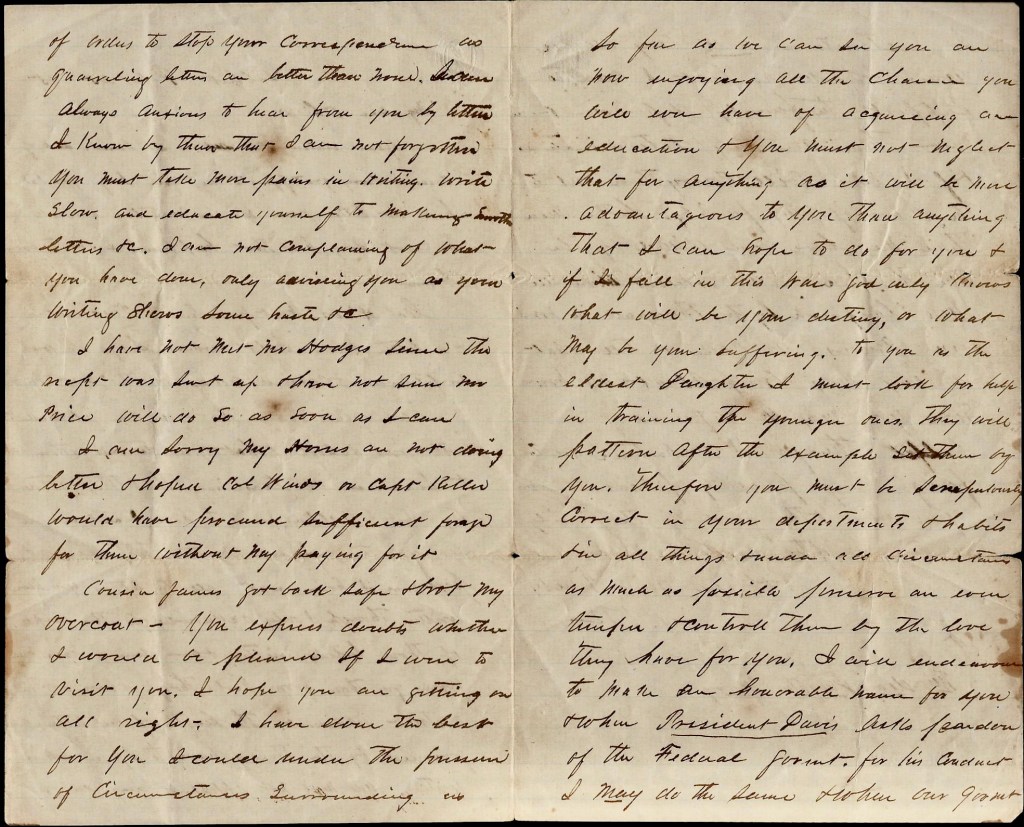 of orders to stop your Correspondence as
quarreling letters are better than none. I am
always anxious to hear from you by letter
I Know by them that I am not forgotten
You must take more pains in writing. Write
Slow. and educate yourself to making Smooth
letters &c. I am not Complaining of what
you have done, only advising you as your
writing Shows Some haste &c
I have not met Mr Hodges Since the
regt was sent up & have not seen Mr
Price will do So as Soon as I can
I am Sorry my Horses are not doing
better & hoped Col Winds or Capt Keller
would have procured sufficient forage
for them without my paying for it
Cousin James got back safe & brot my
overcoat – You express doubts whether
I would be pleased If I were to
visit you. I hope you are getting on
all right – I have done the best
for you I could under the pressure
of Circumstances Surrounding us
So far as we can see you are
now enjoying all the Chance you
will ever have of acquiring an
education & you must not neglect
that for anything as it will be more
advantageous to you than anything
that I can hope to do for you &
if I fall in this War God only knows
what will be your destiny, or what
May be your Suffering. to you as the
eldest Daughter I must look for help
in training the younger ones. they will
pattern after the example set them by
you. Therefore you must be Scrupulously
Correct in your deportments & habits
& in all things & under all Circumstances
as much as possible preserve an even
temper & controll them by the love
they have for you. I will endeavour
to make an honorable name for you
& when President Davis asks pardon
of the Federal Govmt. for his Conduct
I May do the same & when our govmt